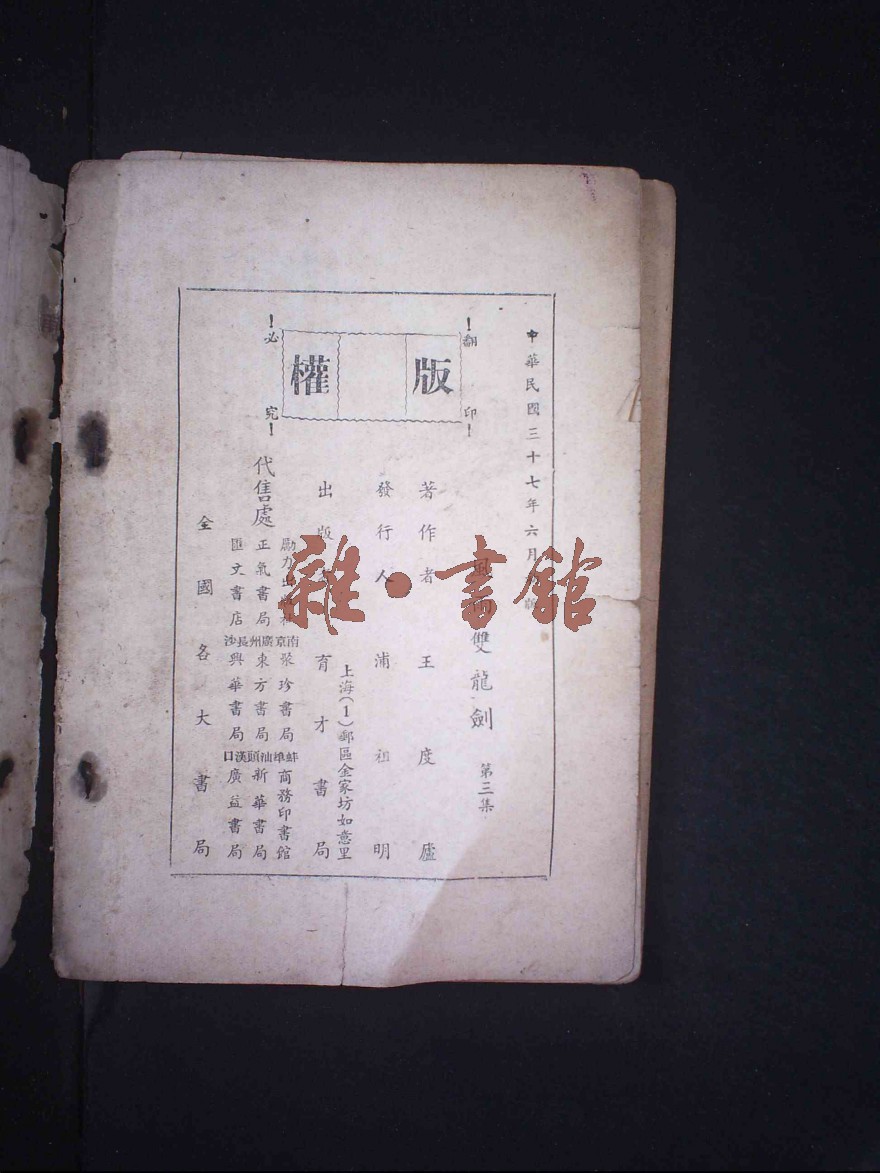 中華民國三十七年六月
版權
!翻印!
!必究!
雙龍劍 第三集
著作者 王度廬
發行人 浦祖明
出版 育才書局
上海(1)郵區金家坊如意里
代售處
勵力出版社
正氣書局
匯文書店
南京 廣州 長沙
聚珍書局
東方書局
興華書局
蚌埠 汕頭 漢口
商務印書館
新華書局
廣益書局
全國各大書局
雜·書館